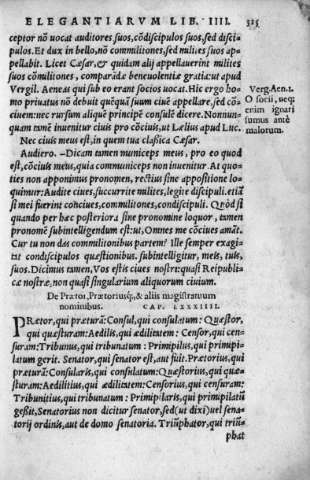 ELEGANTIARVM LIB. IIII. 325
ceptor nõ uocat auditores suos, cõdiscipulos suos, sed disci-
pulos. Et dux in bello, nõ commilitones, sed milites suos ap-
pellabit. Licet Cæsar, & quidam alij appellauerint milites
suos cõmilitones, comparãdæ beneuolentiæ gratia: ut apud
Vergil. Aeneas qui sub eo erant socios uocat. Hic ergo ho-
mo priuatus nõ debuit quẽquã suum ciuẽ appellare, sed cõ-
ciuem: nec rursum aliquẽ principẽ consulẽ dicere. Nonnun-
quam tamẽ inuenitur ciuis pro cõciuis, ut Lælius apud Luc.
Nec ciuis meus est, in quem tua classica Cæsar.
Audiero. –Dicam tamen municeps meus, pro eo quod
est, cõciuis meus, quia communiceps non inuenitur. At quo
ties non apponimus pronomen, rectius sine appositione lo-
quimur: Audite ciues, succurrite milites, legite discipuli. etiã
si mei fuerint conciues, commilitones, condiscipuli. Quòd si
quando per hæc posteriora sine pronomine loquor, tamen
pronomẽ subintelligendum est: ut, Omnes me cõciues amãt.
Cur tu non das commilitonibus partem? Ille semper exagi-
tat condiscipulos quæstionibus. subintelligitur, meis, tuis,
suos. Dicimus tamen, Vos estis ciues nostri: quasi Reipubli-
cæ nostræ, non quasi singularium aliquorum ciuium.
De Prætor, Prætoriusq́;, & aliis magistratuum
nominibus. CAP. LXXXIIII.
PRætor, qui præturã: Consul, qui consulatum: Quæstor,
qui quæsturam: Aedilis, qui ædilitatem: Censor, qui cen-
suram: Tribunus, qui tribunatum: Primipilus, qui primipi-
latum gerit. Senator, qui senator est, aut fuit. Prætorius, qui
præturã: Consularis, qui consulatum: Quæstorius, qui quæ-
sturam: Aedilitius, qui ædilitatem: Censorius, qui censuram:
Tribunitius, qui tribunatum: Primipilaris, qui primipilatũ
gessit, Senatorius non dicitur senator, sed (ut dixi) uel sena-
torij ordinis, aut de domo senatoria. Triũphator, qui triũ-
phat
Verg. Aen. 1.
O socii, neq;
enim ignari
sumus antè
malorum.